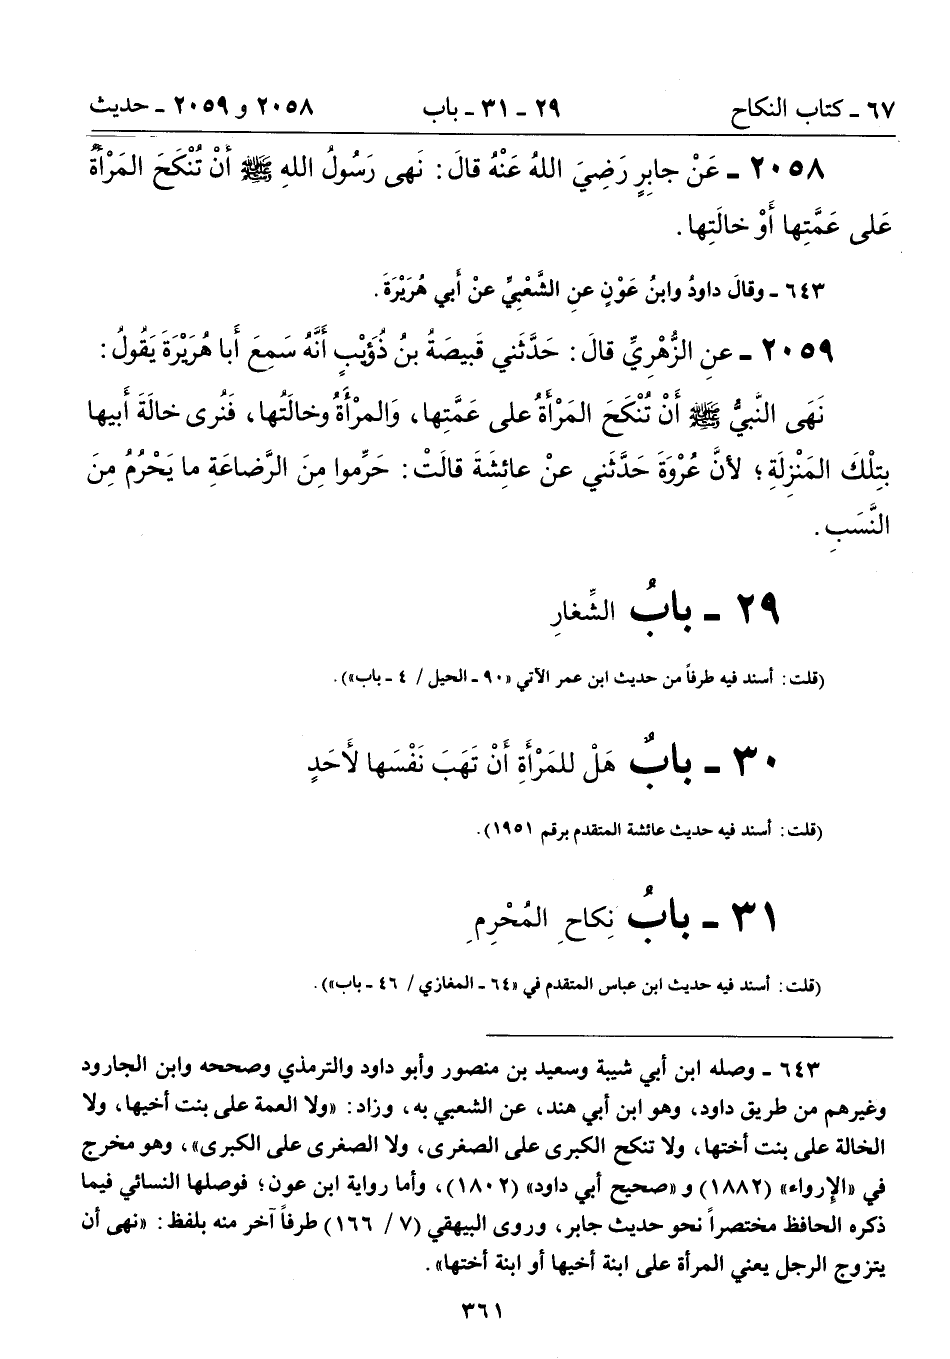 ٦٧ ـ كتاب النكاح ٢٩ ـ ٣١ ـ باب ٢٠٥٨ و ٢٠٥٩ ـ حديث
٢٠٥٨ ـ عَنْ جابِرٍ رَضِيَ اللهُ عَنْهُ قالَ: نَهى رَسُولُ اللهِ ﷺ أَنْ تُنْكَحَ المَرْأَةُ
عَلى عَمَّتِها أَوْ خالَتِها.
٦٤٣ ـ وقالَ داودُ وابنُ عَوْنٍ عنِ الشَّعْبِيِّ عنْ أَبي هُرَيْرَةَ.
٢٠٥٩ ـ عنِ الزُّهْرِيِّ قالَ: حَدَّثَني قَبيصَةُ بنُ ذُؤَيْبٍ أَنَّهُ سَمِعَ أَبا هُرَيْرَةَ يَقُولُ:
نَهَى النَّبيُّ ﷺ أَنْ تُنْكَحَ المَرْأَةُ على عَمَّتِها، وَالمرْأَةُ وخالَتُها، فَنُرى خالَةَ أَبيها
بِتِلْكَ المَنْزِلَةِ؛ لأنَّ عُرْوَةَ حَدَّثَني عنْ عائِشَةَ قالَتْ: حَرِّموا مِنَ الرَّضاعَةِ ما يَحْرُمُ مِنَ
النَّسَبِ.
٢٩ ـ بابُ الشِّغارِ
(قلت: أسند فيه طرفاً من حديث ابن عمر الآتي «٩٠ ـ الحيل / ٤ ـ باب»).
٣٠ ـ بابٌ هَلْ للمَرْأَةِ أَنْ تَهَبَ نَفْسَها لأَحَدٍ
(قلت: أسند فيه حديث عائشة المتقدم برقم ١٩٥١).
٣١ ـ بابُ نِكاحِ المُحْرِمِ
(قلت: أسند فيه حديث ابن عباس المتقدم في «٦٤ ـ المغازي / ٤٦ ـ باب»).
٦٤٣ ـ وصله ابن أبي شيبة وسعيد بن منصور وأبو داود والترمذي وصححه وابن الجارود
وغيرهم من طريق داود، وهو ابن أبي هند، عن الشعبي به، وزاد: «ولا العمة على بنت أخيها، ولا
الخالة على بنت أختها، ولا تنكح الكبرى على الصغرى، ولا الصغرى على الكبرى»، وهو مخرج
في «الإرواء» (١٨٨٢) و «صحيح أبي داود» (١٨٠٢)، وأما رواية ابن عون؛ فوصلها النسائي فيما
ذكره الحافظ مختصراً نحو حديث جابر، وروى البيهقي (٧ / ١٦٦) طرفاً آخر منه بلفظ: «نهى أن
يتزوج الرجل يعني المرأة على ابنة أخيها أو ابنة أختها».
٣٦١